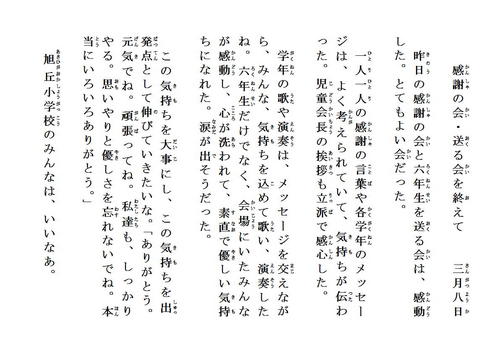 感謝の会・送る会を終えて　三月八日
昨日の感謝の会と六年生を送る会は、感動
した。とてもよい会だった。
一人一人の感謝の言葉や各学年のメッセー
ジは、よく考えられていて、気持ちが伝わ
った。児童会長の挨拶も立派で感心した。
学年の歌や演奏は、メッセージを交えなが
ら、みんな、気持ちを込めて歌い、演奏した
ね。六年生だけでなく、会場にいたみんな
が感動し、心が洗われて、素直で優しい気持
ちになれた。涙が出そうだった。
この気持ちを大事にし、この気持ちを出
発点として伸びていきたいな。「ありがとう。
元気でね。頑張ってね。私達も、しっかり
やる。思いやりと優しさを忘れないでね。本
当にいろいろありがとう。」
旭丘小学校のみんなは、いいなあ。